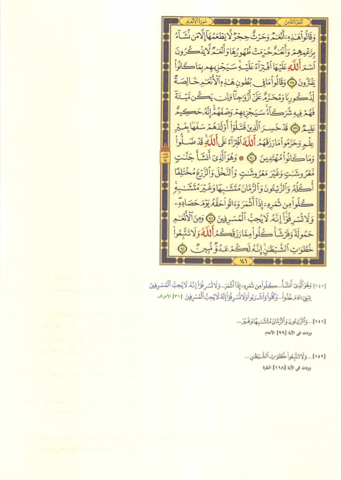 الجزء الثامن
سورة الأنعام
وَقَالُوا۟ هَـٰذِهِۦٓ أَنْعَـٰمٌ وَحَرْثٌ حِجْرٌ لَّا يَطْعَمُهَآ إِلَّا مَن نَّشَآءُ
بِزَعْمِهِمْ وَأَنْعَـٰمٌ حُرِّمَتْ ظُهُورُهَا وَأَنْعَـٰمٌ لَّا يَذْكُرُونَ
ٱسْمَ ٱللَّهِ عَلَيْهَا ٱفْتِرَآءً عَلَيْهِ سَيَجْزِيهِم بِمَا كَانُوا۟
يَفْتَرُونَ ١٣٨ وَقَالُوا۟ مَا فِى بُطُونِ هَـٰذِهِ ٱلْأَنْعَـٰمِ خَالِصَةٌ
لِّذُكُورِنَا وَمُحَرَّمٌ عَلَىٰٓ أَزْوَٰجِنَا وَإِن يَكُن مَّيْتَةً
فَهُمْ فِيهِ شُرَكَآءُ سَيَجْزِيهِمْ وَصْفَهُمْ إِنَّهُۥ حَكِيمٌ
عَلِيمٌ ١٣٩ قَدْ خَسِرَ ٱلَّذِينَ قَتَلُوٓا۟ أَوْلَـٰدَهُمْ سَفَهًۢا بِغَيْرِ
عِلْمٍ وَحَرَّمُوا۟ مَا رَزَقَهُمُ ٱللَّهُ ٱفْتِرَآءً عَلَى ٱللَّهِ قَدْ ضَلُّوا۟
وَمَا كَانُوا۟ مُهْتَدِينَ ١٤٠ وَهُوَ ٱلَّذِىٓ أَنشَأَ جَنَّـٰتٍ
مَّعْرُوشَـٰتٍ وَغَيْرَ مَعْرُوشَـٰتٍ وَٱلنَّخْلَ وَٱلزَّرْعَ مُخْتَلِفًا
أُكُلُهُۥ وَٱلزَّيْتُونَ وَٱلرُّمَّانَ مُتَشَـٰبِهًا وَغَيْرَ مُتَشَـٰبِهٍ
كُلُوا۟ مِن ثَمَرِهِۦٓ إِذَآ أَثْمَرَ وَءَاتُوا۟ حَقَّهُۥ يَوْمَ حَصَادِهِۦ
وَلَا تُسْرِفُوٓا۟ إِنَّهُۥ لَا يُحِبُّ ٱلْمُسْرِفِينَ ١٤١ وَمِنَ ٱلْأَنْعَـٰمِ
حَمُولَةً وَفَرْشًا كُلُوا۟ مِمَّا رَزَقَكُمُ ٱللَّهُ وَلَا تَتَّبِعُوا۟
خُطُوَٰتِ ٱلشَّيْطَـٰنِ إِنَّهُۥ لَكُمْ عَدُوٌّ مُّبِينٌ ١٤٢
١٤٦
[١٤١] وَهُوَ ٱلَّذِىٓ أَنشَأَ... كُلُوا۟ مِن ثَمَرِهِۦٓ إِذَآ أَثْمَرَ... وَلَا تُسْرِفُوٓا۟ إِنَّهُۥ لَا يُحِبُّ ٱلْمُسْرِفِينَ
يَـٰبَنِىٓ ءَادَمَ خُذُوا۟... وَكُلُوا۟ وَٱشْرَبُوا۟ وَلَا تُسْرِفُوٓا۟ إِنَّهُۥ لَا يُحِبُّ ٱلْمُسْرِفِينَ [٣١] الأعراف
[١٤١] ... وَٱلزَّيْتُونَ وَٱلرُّمَّانَ مُتَشَـٰبِهًا وَغَيْرَ...
وردت في الآية [٩٩] الأنعام
[١٤٢] ... وَلَا تَتَّبِعُوا۟ خُطُوَٰتِ ٱلشَّيْطَـٰنِ...
وردت في الآية [١٦٨] البقرة